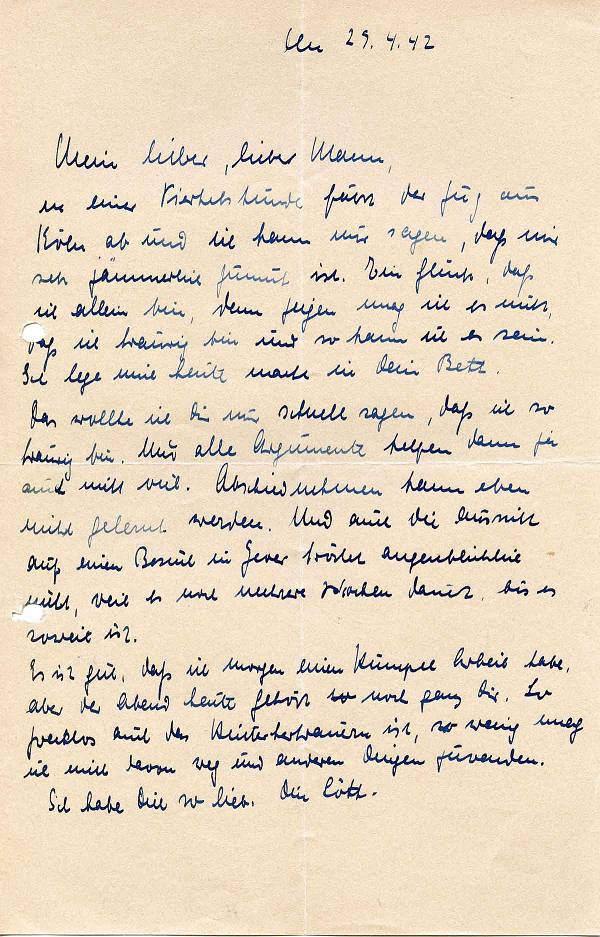 29.4.42
Mein lieber, lieber Mann,
in einer Viertelstunde fährt der Zug aus
Köln ab und ich kann nur sagen, daß mir
sehr jämmerlich zumut ist. Ein Glück, daß
ich allein bin, denn zeigen mag ich es nicht,
daß ich traurig bin und so kann ich es sein.
Ich lege mich heute nacht in Dein Bett.
Das wollte ich Dir nur schnell sagen, daß ich so
traurig bin. Und alle Argumente helfen dann ja
auch nicht viel. Abschiednehmen kann eben
nicht gelernt werden. Und auch die Aussicht
auf einen Besuch in Jever tröstet augenblicklich
nicht, weil es noch mehrere Wochen dauert, bis es
soweit ist.
Es ist gut, daß ich morgen einen Humpel Arbeit habe,
aber der Abend heute gehört noch ganz Dir. So
zwecklos auch das Hinterhertrauern ist, so wenig mag
ich mich davon weg und anderen Dingen zuwenden.
Ich habe Dich so lieb. Dein